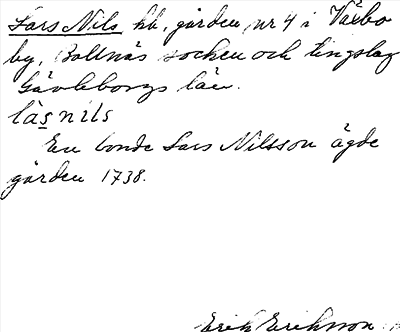 Lars Nils hb, gården nr 4 i Växbo
by, Bollnäs socken och tingslag
Gävleborgs län.
làs nils
En bonde Lars Nilsson ägde
gården 1738.
Erik Eriksson